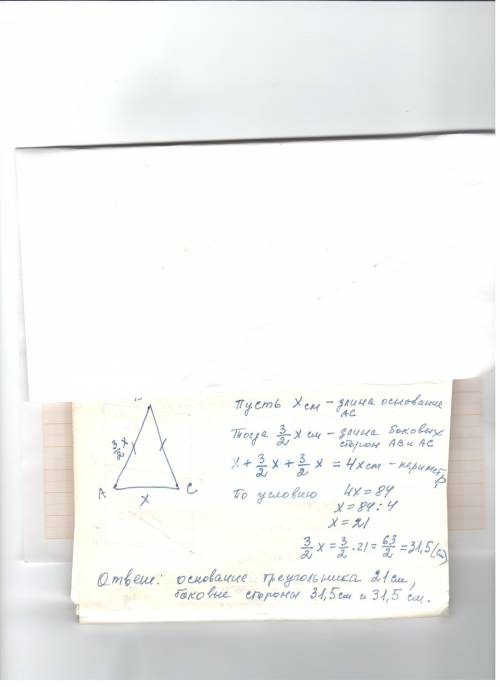 B
Пусть x см – длина основание
AC
Тогда 3/2 x см – длина боковых
сторон AB и AC
3/2 x
x + 3/2 x + 3/2 x = 4x см – периметр
A
C
x
По условию 4x = 84
x = 84 : 4
x = 21
3/2 x = 3/2 · 21 = 63/2 = 31,5 (см)
Ответ: основание треугольника 21 см,
боковые стороны 31,5 см и 31,5 см.